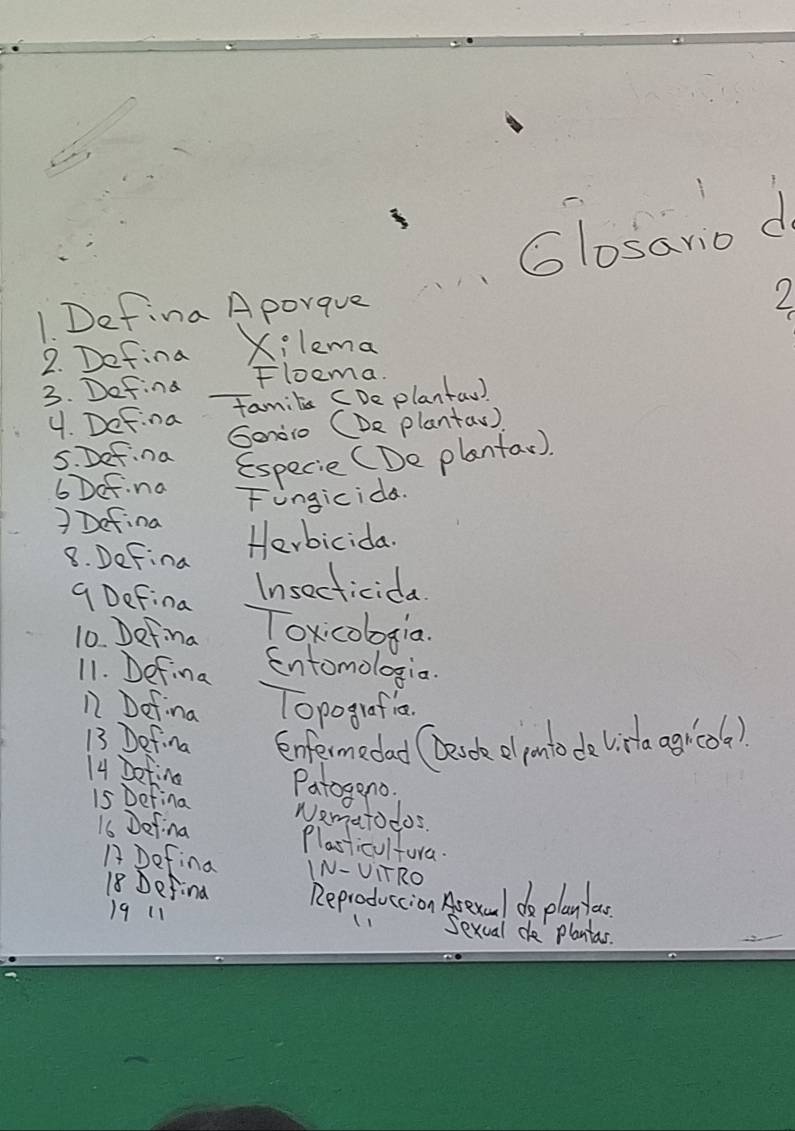 Glosario d
2
1. Defina Aporque
2. Defina Xilema
3. Defina Floema.
4. Defina Familia (De plantas).
5. Defina Genero (De plantas).
6 Defina Especie (De plantas).
7 Defina Fungicida.
8. Defina Herbicida.
9 Defina Insecticida.
10. Defina Toxicología.
11. Defina Entomología.
12 Defina Topografía.
13 Defina Enfermedad (Desde el punto de vista agrícola).
14 Defina Patogeno.
15 Defina Nematodos.
16 Defina Plasticultura.
17 Defina IN-VITRO
18 Defina Reproduccion Asexual de plantas.
19 " " Sexual de plantas.